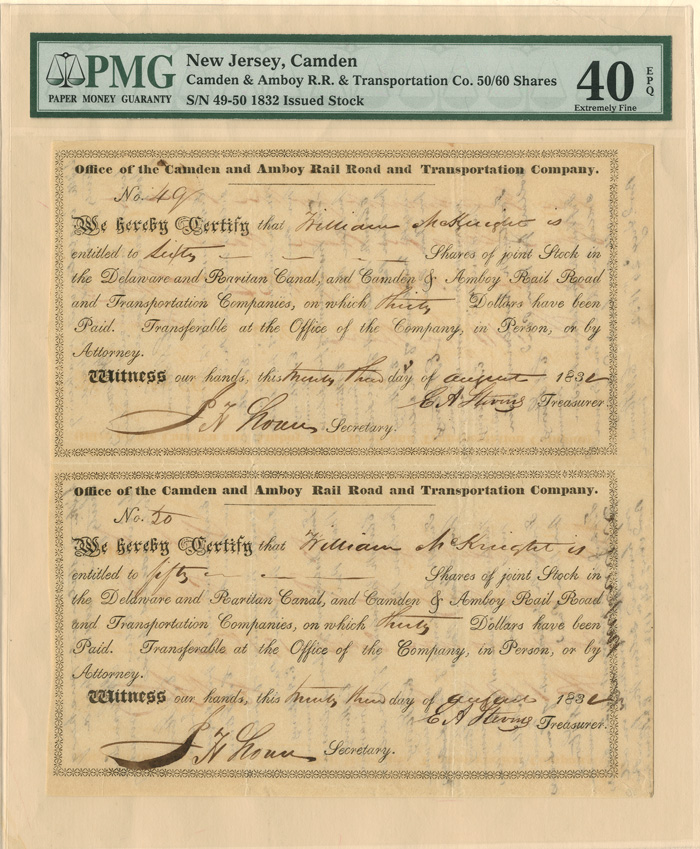 PMG
PAPER MONEY GUARANTY
New Jersey, Camden
Camden & Amboy R.R. & Transportation Co. 50/60 Shares
S/N 49-50 1832 Issued Stock
40
EPQ
Extremely Fine
Office of the Camden and Amboy Rail Road and Transportation Company.
No. 49
We hereby Certify that William McKnight is
entitled to Sixty Shares of joint Stock in
the Delaware and Raritan Canal, and Camden & Amboy Rail Road
and Transportation Companies, on which thirty Dollars have been
Paid. Transferable at the Office of the Company, in Person, or by
Attorney.
Witness our hands, this twenty third day of august 1832
E A Stevens Treasurer
Secretary.
Office of the Camden and Amboy Rail Road and Transportation Company.
No. 50
We hereby Certify that William McKnight is
entitled to fifty Shares of joint Stock in
the Delaware and Raritan Canal, and Camden & Amboy Rail Road
and Transportation Companies, on which thirty Dollars have been
Paid. Transferable at the Office of the Company, in Person, or by
Attorney.
Witness our hands, this twenty third day of august 1832
E A Stevens Treasurer.
Secretary.